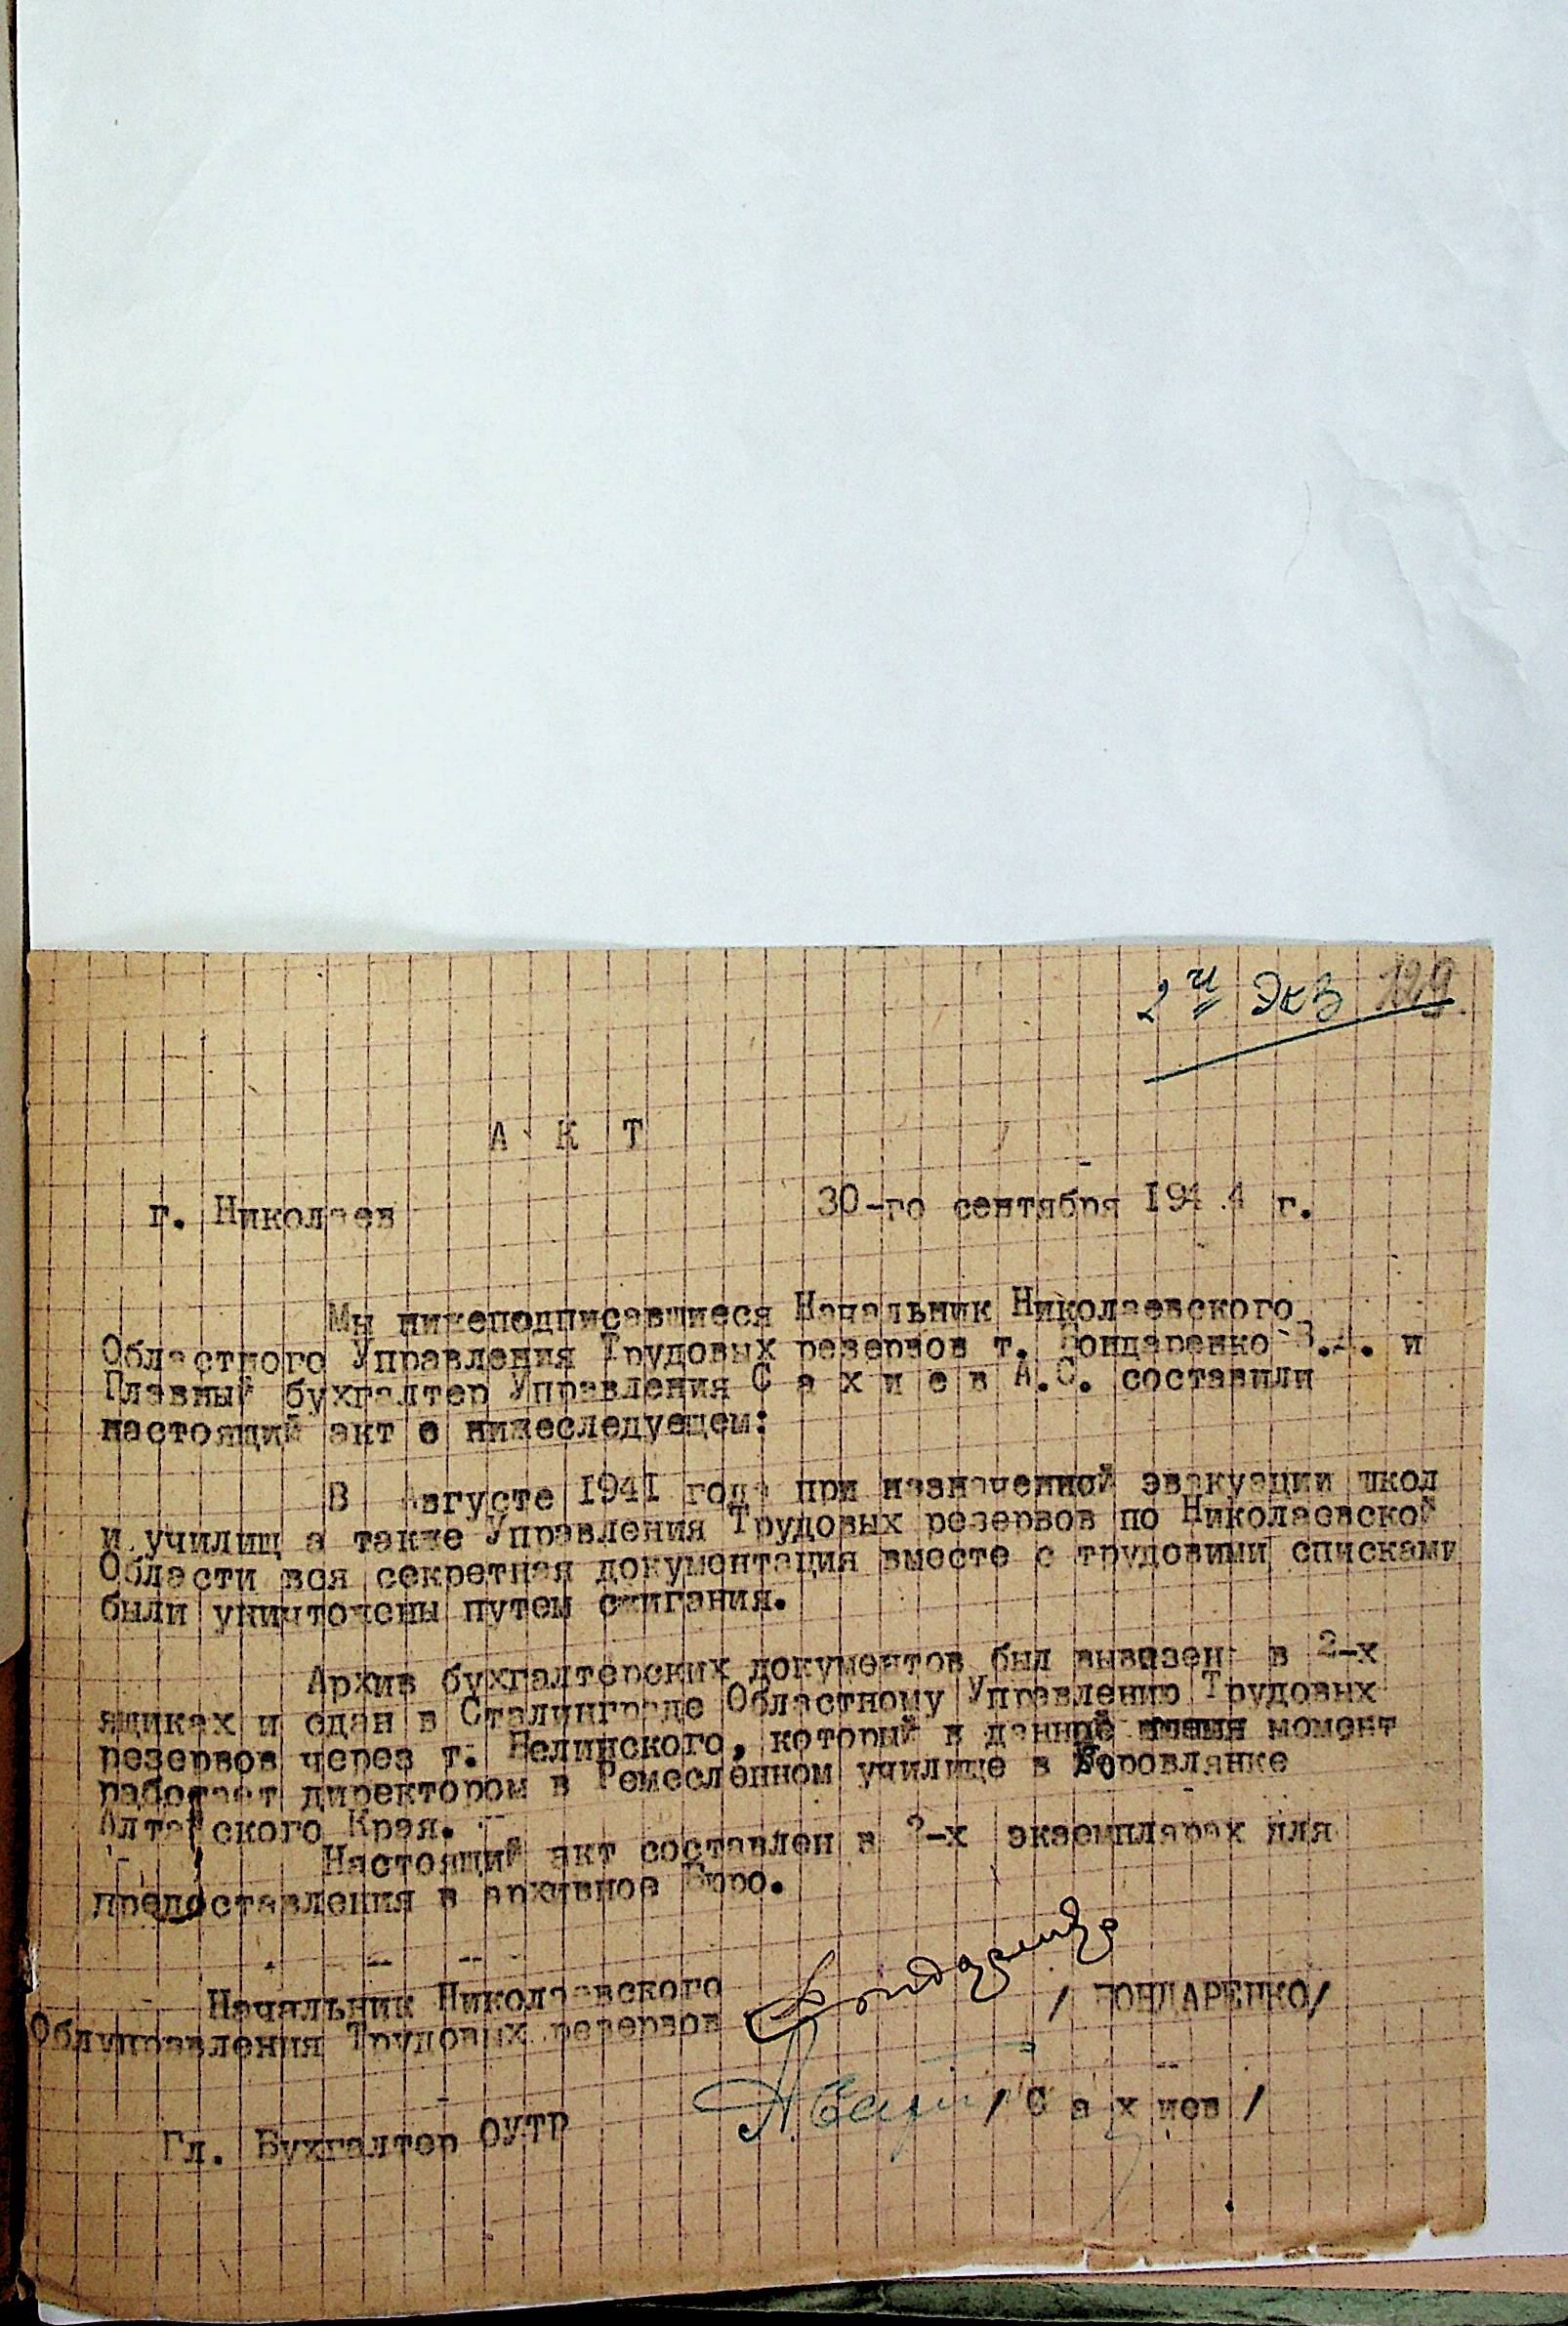 2й Экз 129
А К Т
г. Николаев 30-го сентября 1944 г.
Мы нижеподписавшиеся Начальник Николаевского
Областного Управления Трудовых резервов т. Бондаренко и
Главный бухгалтер Управления С а х н е в А.С. составили
настоящий акт о нижеследующем:
В Августе 1941 года при назначенной эвакуации школ
и училищ а также Управления Трудовых резервов по Николаевской
Области вся секретная документация вместе с трудовыми списками
были уничтожены путем сжигания.
Архив бухгалтерских документов был вывезен в 2-х
ящиках и сдан в Сталинграде Областному Управлению Трудовых
резервов через т. Белинского, который в данный момент
работает директором в Ремесленном училище в Боровлянке
Алтайского Края.
Настоящий акт составлен в 2-х экземплярах для
предоставления в архивное Бюро.
Начальник Николаевского
Облуправления Трудовых резервов Бондаренко / БОНДАРЕНКО/
Гл. Бухгалтер ОУТР / С а х нев /